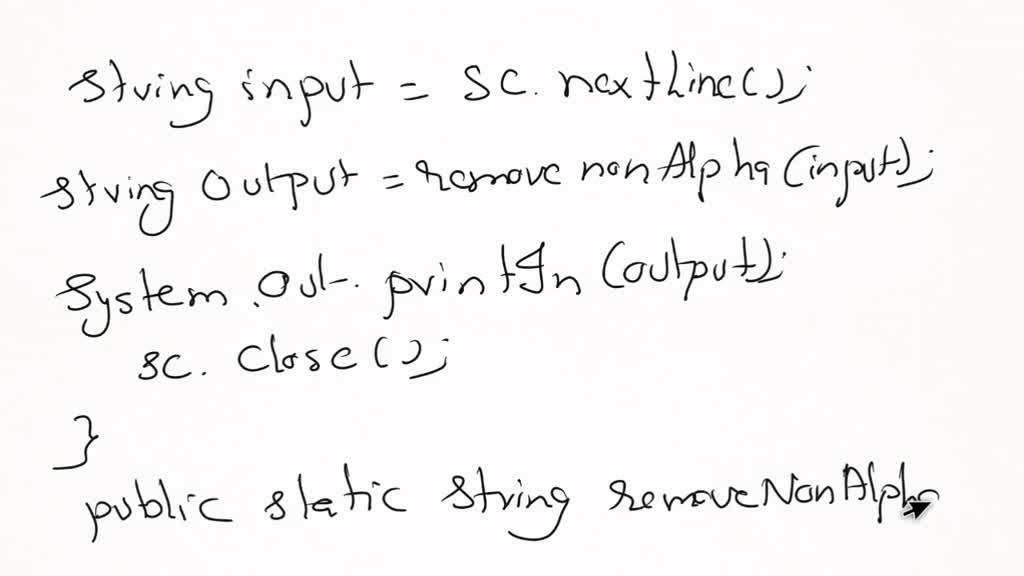 string input = sc. nextLine();
string output = remove nonAlpha (input);
System .out. printIn (output);
sc. close();
}
public static string removeNonAlpha